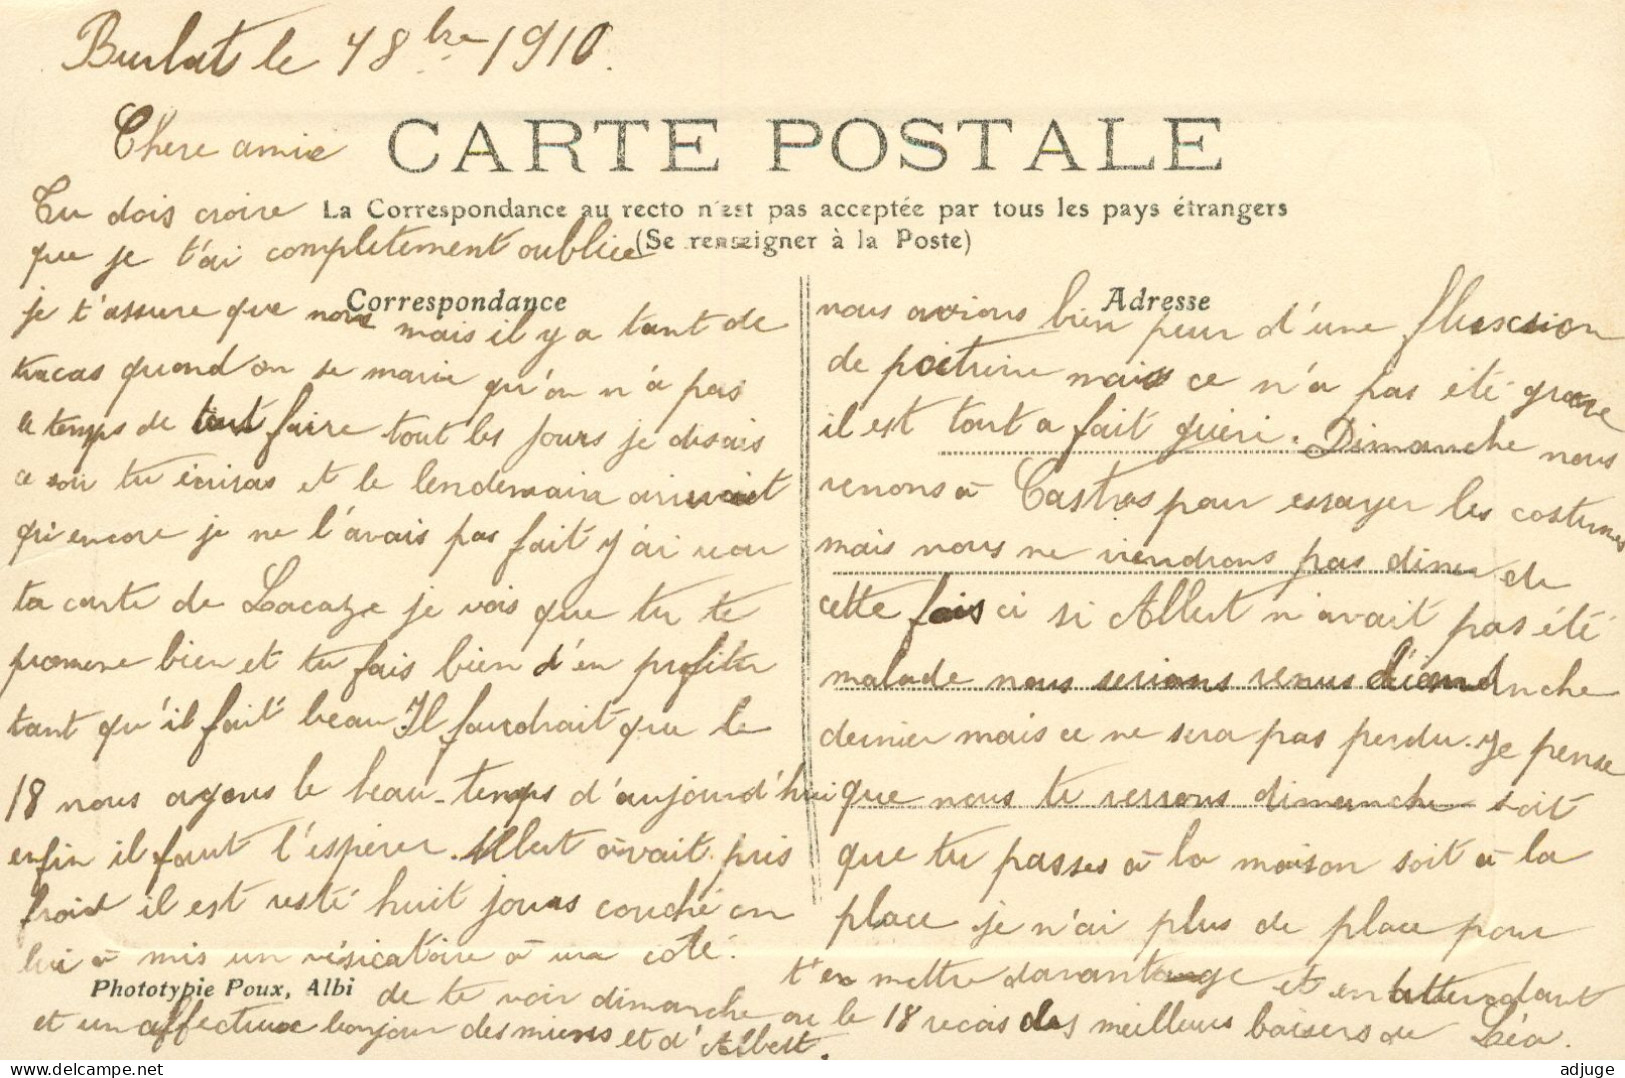 Burlat le 4 8bre 1910.
Chere amie
CARTE POSTALE
La Correspondance au recto n'est pas acceptée par tous les pays étrangers
(Se renseigner à la Poste)
Correspondance
Adresse
Tu dois croire
que je t'ai completement oubliée
je t'assure que non mais il y a tant de
tracas quand on se marie qu'on n'a pas
le temps de tout faire tout les jours je disais
ce soir tu écriras et le lendemain arrivait
qu'encore je ne l'avais pas fait j'ai reçu
ta carte de Lacaze je vois que tu te
promene bien et tu fais bien d'en profiter
tant qu'il fait beau Il faudrait que le
18 nous ayons le beau-temps d'aujourd'hui
enfin il faut l'espérer. Albert avait pris
froid il est resté huit jours couché on
lui à mis un vésicatoire à un côté.
nous avions bien peur d'une fluxion
de poitrine mais ce n'a pas été grave
il est tout a fait guéri. Dimanche nous
venons à Castres pour essayer les costumes
mais nous ne viendrons pas diner de
cette fois ci si Albert n'avait pas été
malade nous serions venus dimanche
dernier mais ce ne sera pas perdu. Je pense
que nous te verrons dimanche soit
que tu passes à la maison soit à la
place je n'ai plus de place pour
t'en mettre davantage et en attendant
de te voir dimanche ou le 18 reçois des meilleurs baisers de Léa.
et un affectueux bonjour des miens et d'Albert.
Phototypie Poux, Albi
adjuge